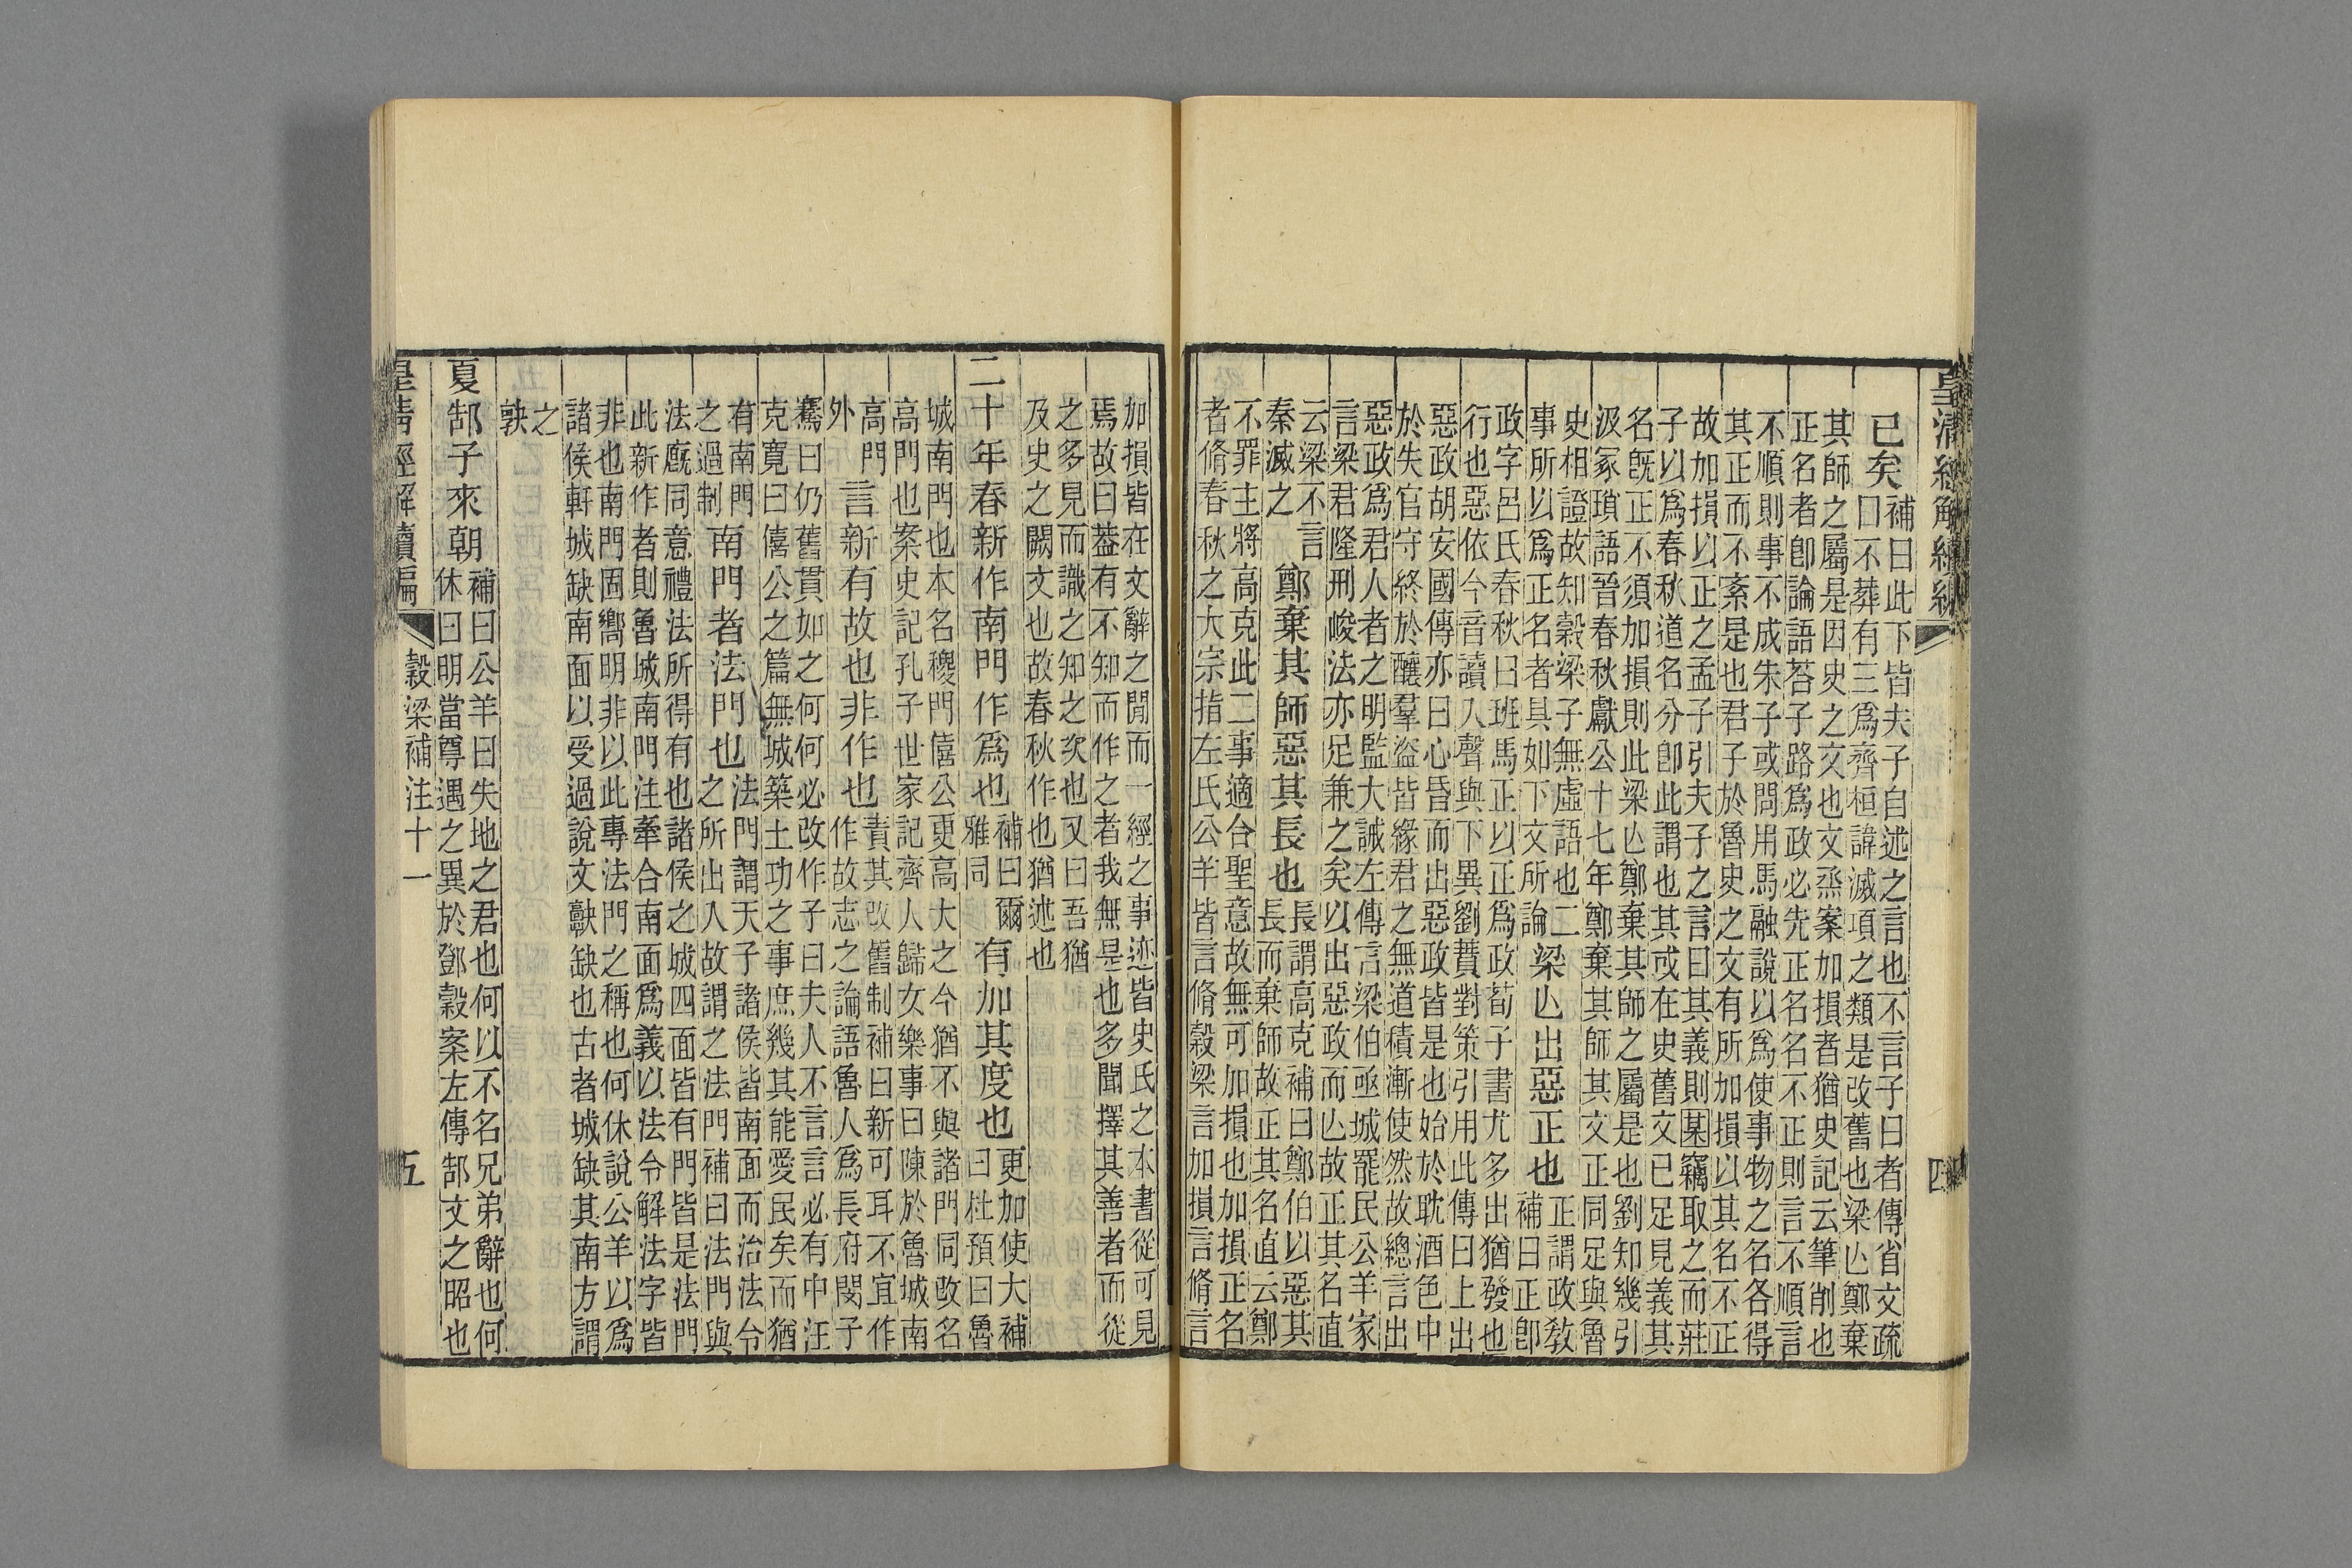 皇清經解續編 四
已矣
補曰此下皆夫子自述之言也不言子曰者傳省文疏
曰不葬有三爲齊桓諱滅項之類是改舊也梁亾鄭棄
其師之屬是因史之文也文烝案加損者猶史記云筆削也
正名者卽論語荅子路爲政必先正名名不正則言不順言
不順則事不成朱子或問用馬融說以爲使事物之名各得
其正而不紊是也君子於魯史之文有所加損以其名不正
故加損以正之孟子引夫子之言曰其義則某竊取之而莊
子以爲春秋道名分卽此謂也其或在史舊文已足見義其
名旣正不須加損則此梁亾鄭棄其師之屬是也劉知幾引
汲冢瑣語晉春秋獻公十七年鄭棄其師其文正同足與魯
史相證故知穀梁子無虛語也二
事所以爲正名者具如下文所論
梁亾出惡正也
正謂政敎
補曰正卽
政字呂氏春秋曰班馬正以正爲政荀子書尤多出猶發也
行也惡依今音讀入聲與下異劉蕡對策引用此傳曰上出
惡政胡安國傳亦曰心昏而出惡政皆是也始於耽酒色中
於失官守終於釀羣盜皆緣君之無道積漸使然故總言出
惡政爲君人者之明監大誡左傳言梁伯亟城罷民公羊家
言梁君隆刑峻法亦足兼之矣以出惡政而亾故正其名直
云梁不言
秦滅之
鄭棄其師惡其長也
長謂高克補曰鄭伯以惡其
長而棄師故正其名直云鄭
不罪主將高克此二事適合聖意故無可加損也加損正名
者脩春秋之大宗指左氏公羊皆言脩穀梁言加損言脩言
加損皆在文辭之閒而一經之事迹皆史氏之本書從可見
焉故曰葢有不知而作之者我無是也多聞擇其善者而從
之多見而識之知之次也又曰吾猶
及史之闕文也故春秋作也猶述也
二十年春新作南門作爲也
補曰爾
雅同
有加其度也
更加使大補
曰杜預曰魯
城南門也本名稷門僖公更高大之今猶不與諸門同改名
高門也案史記孔子世家記齊人歸女樂事曰陳於魯城南
高門
外
言新有故也非作也
責其改舊制補曰新可耳不宜作
作故志之論語魯人爲長府閔子
騫曰仍舊貫如之何何必改作子曰夫人不言言必有中汪
克寬曰僖公之篇無城築土功之事庶幾其能愛民矣而猶
有南門
之過制
南門者法門也
法門謂天子諸侯皆南面而治法令
之所出入故謂之法門補曰法門與
法廐同意禮法所得有也諸侯之城四面皆有門皆是法門
此新作者則魯城南門注牽合南面爲義以法令解法字皆
非也南門固嚮明非以此專法門之稱也何休說公羊以爲
諸侯軒城缺南面以受過說文缺也古者城缺其南方謂
之
夏郜子來朝
補曰公羊曰失地之君也何以不名兄弟辭也何
休曰明當尊遇之異於鄧穀案左傳郜文之昭也
皇清經解續編 穀梁補注十一 五